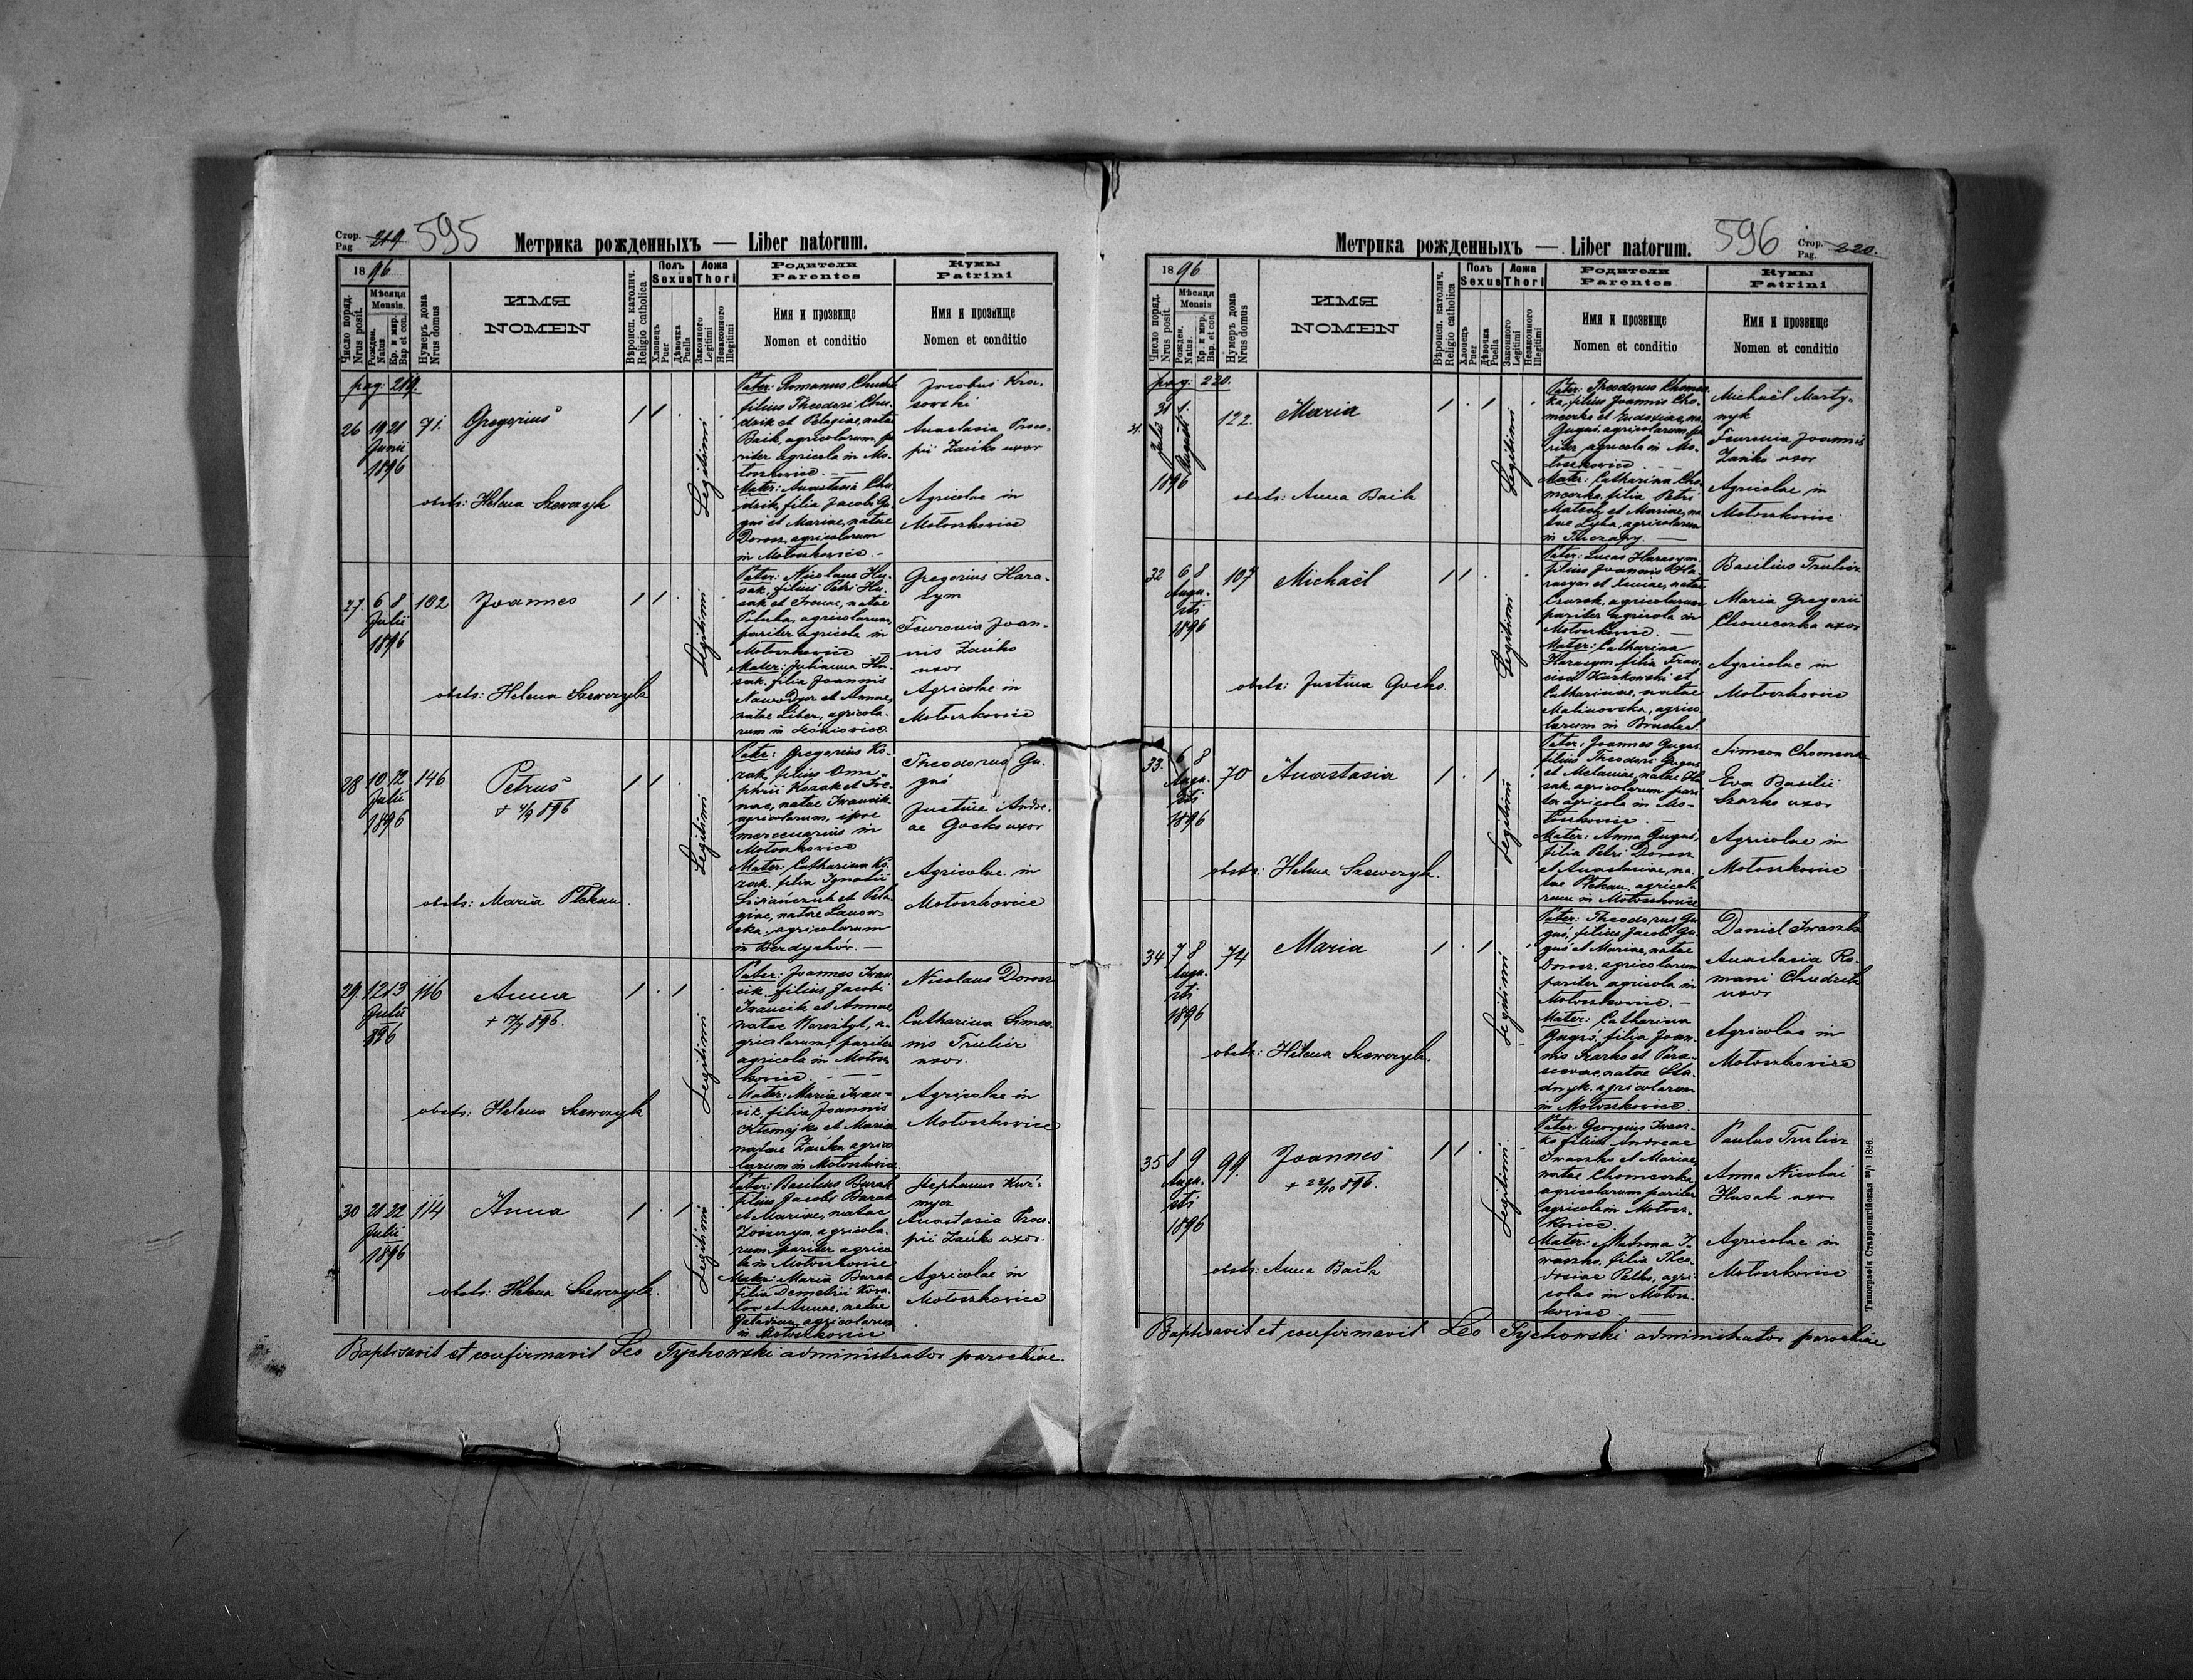 Стор. 219 595
Pag
Метрика рожденныхъ — Liber natorum.
1896
Число поряд.
Nrus posit.
Мѣсяця
Mensis.
Рожден.
Natus
Кр. и мир.
Bap. et con.
Нумеръ дома
Nrus domus
ИМЯ
NOMEN
Вѣроисп. католич.
Religio catholica
Полъ
Sexus
Хлопецъ
Puer
Дѣвочка
Puella
Ложа
Thori
Законного
Legitimi
Незаконного
Illegitimi
Родители
Parentes
Имя и прозвище
Nomen et conditio
Кумы
Patrini
Имя и прозвище
Nomen et conditio
pag: 219.
26 19 21 71. Gregorius
Junii
1896
obsts: Helena Szewczyk
Legitimi
Pater: Romanus Chudzik
filius Theodori Chu-
dzik et Pelagiae, natae
Baik, agricolarum, pa
riter agricola in Mo-
toszkowice. —
Mater: Anastasia Chu
dzik, filia Jacobi Gu-
guś et Mariae, natae
Dorosz, agricolarum
in Motoszkowice. -
Jacobus Kra-
sovski
Anastasia Proco-
pii Zańko uxor
Agricolae in
Motoszkowice
27. 6 8 102 Joannes
Julii
1896
obsts: Helena Szewczyk
Legitimi
Pater: Nicolaus Hu-
sak, filius Petri Hu-
sak et Irenae, natae
agricolarum,
pariter agricola in
Motoszkowice
Mater: Julianna Hu-
sak, filia Joannis
et Annae,
natae Liber, agricola-
rum in
Gregorius Hara-
sym
Feuronia Joan-
nis Zańko
uxor
Agricolae in
Motoszkowice
28 10 12 146 Petrus
Julii
1896
+ 4/9 896
obsts: Maria Ptekan
Legitimi
Pater: Gregorius Ko-
zak, filius Onu-
phrii Kozak et Ire-
nae, natae Iwancik
agricolarum, ipse
mercenarius in
Motoszkowice
Mater: Catharina Ko-
zak, filia Ignatii
et Pela-
giae, natae
agricolarum
in Berdychów. —
Theodorus Gu-
guś
Justina Andre-
ae Gocko uxor
Agricolae in
Motoszkowice
29. 12 13 116 Anna
Julii
896
+ 17/7 896.
obsts: Helena Szewczyk
Legitimi
Pater: Joannes Iwan
cik, filius Jacobi
Iwancik et Annae
natae a-
gricolarum, pariter
agricola in Motosz
kowice. —
Mater: Maria Iwan-
cik, filia Joannis
et Maria
natae Zańko agrico
larum in Motoszkowice.
Nicolaus Dorosz
Catharina Simeo-
nis Trulicz
uxor.
Agricolae in
Motoszkowice
30 21 22 114 Anna
Julii
1896
obsts: Helena Szewczyk.
Legitimi
Pater: Basilius Burak
filius Jacobi Burak
et Mariae, natae
agricola-
rum, pariter agrico
la in Motoszkowice
Mater: Maria Burak
filia Demetrii
et Annae, natae
agricolarum
in Motoszkowice
Stephanus
Anastasia Proco-
pii Zańko uxor.
Agricolae in
Motoszkowice
Baptisavit et confirmavit Leo Tychowski administrator parochiae.
Метрика рожденныхъ — Liber natorum.
596 Стор. 220.
Pag.
1896
Число поряд.
Nrus posit.
Мѣсяця
Mensis
Рожден.
Natus.
Кр. и мир.
Bap. et con.
Нумеръ дома
Nrus domus
ИМЯ
NOMEN
Вѣроисп. католич.
Religio catholica
Полъ
Sexus
Хлопецъ
Puer
Дѣвочка
Puella
Ложа
Thori
Законного
Legitimi
Незаконного
Illegitimi
Родители
Parentes
Имя и прозвище
Nomen et conditio
Кумы
Patrini
Имя и прозвище
Nomen et conditio
pag: 220.
31. 31 1. 122. Maria
Julii Augusti
1896
obsts: Anna Baik
Legitimi
Pater: Theodorus Chomco-
ka, filius Joannis Cho-
mcorka et Eudoxiae, na.
Guguś, agricolarum, pa
riter agricola in Mo-
toszkowice
Mater: Catharina Cho-
mcorka, filia Petri
et Mariae, na-
tae Łyka, agricolarum
in Tuczapy. —
Michaël Marty-
nyk
Feuronia Joannis
Zańko uxor
Agricolae in
Motoszkowice
32 6 8 107 Michaël
Augu-
sti
1896
obsts: Justina Gocko.
Legitimi
Pater: Lucas Harasym
filius Joannis Ha-
rasym et Xeniae, natae
agricolarum
pariter agricola in
Motoszkowice. —
Mater: Catharina
Harasym filia Fran-
cisci et
Catharinae, natae
Malinovska, agrico
larum in Bruchnal.
Basilius Trulicz
Maria Gregorii
Chomcorka uxor
Agricolae in
Motoszkowice
33. 6 8 70 Anastasia
Augu-
sti
1896
obsts: Helena Szewczyk.
Legitimi
Pater: Joannes Guguś
filius Theodori Guguś
et Melaniae, natae Hu
sak agricolarum pari
ter agricola in Mo-
toszkowice. —
Mater: Anna Guguś,
filia Petri Dorosz
et Anastasiae, na-
tae Ptekan, agricola
rum in Motoszkowice
Simeon Chomcorka
Eva Basilii
Szarko uxor
Agricolae in
Motoszkowice
34 7 8 74 Maria
Augu-
sti
1896
obsts: Helena Szewczyk.
Legitimi
Pater: Theodorus Gu
guś, filius Jacobi Gu-
guś et Mariae, natae
Dorosz, agricolarum
pariter agricola in
Motoszkowice. —
Mater: Catharina
Guguś, filia Joan-
nis Szarko et Para-
scevae, natae Sta-
dnyk, agricolarum
in Motoszkowice.
Daniel Iwaszko
Anastasia Ro-
mani Chudzik
uxor
Agricolae in
Motoszkowice
35 8 9 99. Joannes
Augu-
sti
1896
+ 22/10 896.
obsts: Anna Baik
Legitimi.
Pater: Georgius Iwasz-
ko filius Andreae
Iwaszko et Mariae,
natae Chomcorka,
agricolarum pariter
agricola in Motosz-
kowice.
Mater: Matrona I-
waszko, filia Theo-
dosiae Petko, agri-
colae in Motosz-
kowice. —
Paulus Trulicz
Anna Nicolai
Husak uxor
Agricolae in
Motoszkowice
Baptisavit et confirmavit Leo Tychowski administrator parochiae
Типографія Ставропигійская 1896.